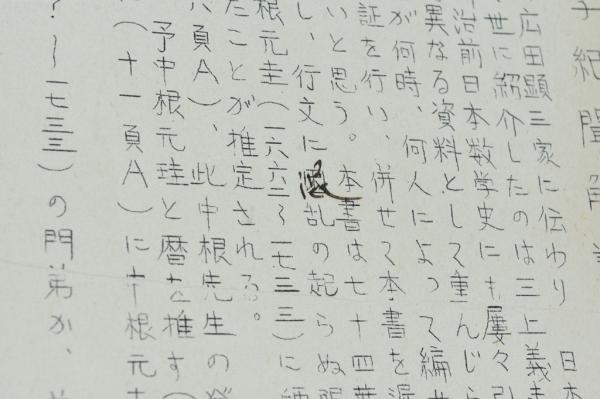 子紀聞
日本
広田顕三家に伝わり
世に紹介したのは三上義
治前日本数学史にも屢々引
異なる資料として重んじら
が何時、何人によって編
証を行い、併せて本書を
いと思う。本書は七十四葉
し、行文に乱の起らぬ限
根元圭(一六六二〜一七三三)に
たことが推定される。
八頁A)、此中根先生の
予中根元珪と暦を推す(
(十一頁A)に中根元
?〜一七三三)の門弟か、